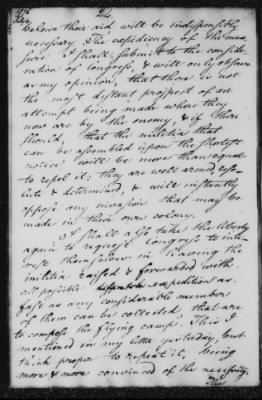 24.
believe their aid will be indispensibly
necessary. The expediency of this mea-
sure I shall submit to the conside-
ration of Congress, & will only observe
as my opinion, that there is not
the most distant prospect of an
attempt being made where they
now are by the enemy, & if there
should, that the militia that
can be assembled upon the shortest
notice will be more than equal
to repel it; they are well armed, reso-
lute & determined, & will instantly
oppose any invasion that may be
made in their own colony.
I shall also take the liberty
again to request Congress to inte-
rest themselves in having the
militia raised & forwarded with
all possible expedition as
fast as any considerable number
of them can be collected, that are
to compose the flying camp. This I
mentioned in my letter yesterday, but
think proper to repeat it, being
more & more convinced of the necessity.
The